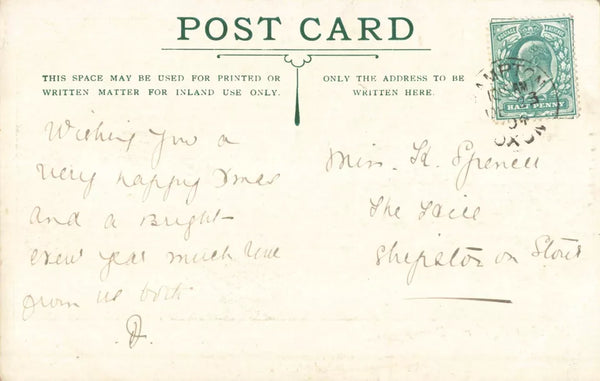 POST CARD
THIS SPACE MAY BE USED FOR PRINTED OR
WRITTEN MATTER FOR INLAND USE ONLY.
ONLY THE ADDRESS TO BE
WRITTEN HERE.
HALF PENNY
OXON
Wishing you a
very happy Xmas
and a Bright
new year much love
from us both
Miss. K. Spencer
The
Shipston on Stour